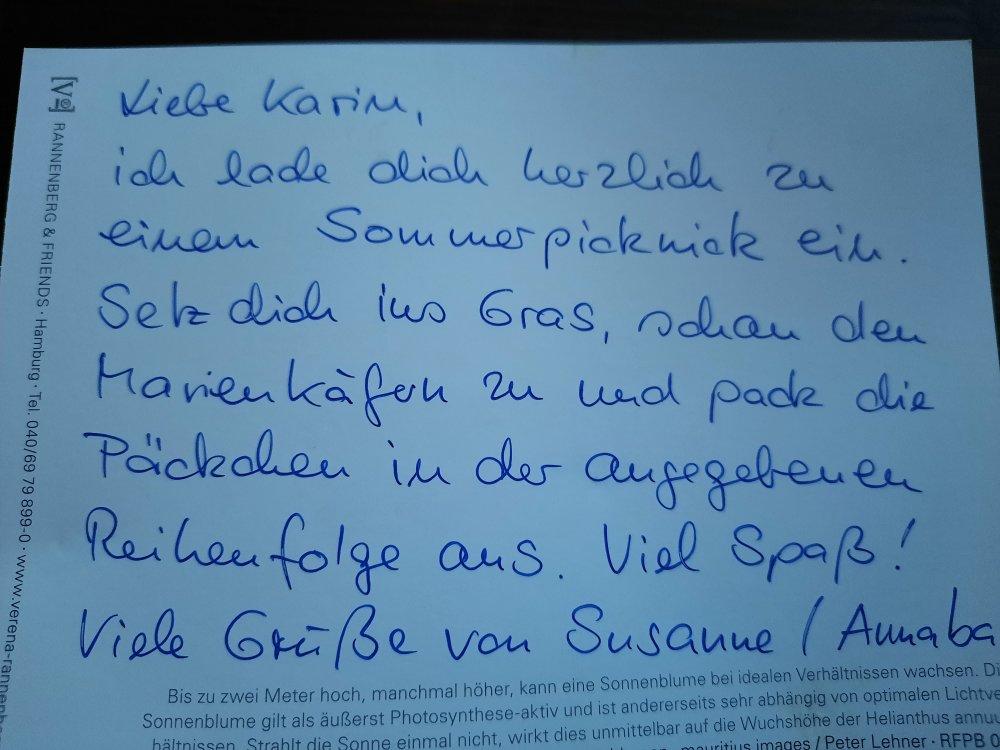 Liebe Karin,
ich lade dich herzlich zu
einem Sommerpicknick ein.
Setz dich ins Gras, schau den
Marienkäfern zu und pack die
Päckchen in der angegebenen
Reihenfolge aus. Viel Spaß!
Viele Grüße von Susanne / Annaba
Bis zu zwei Meter hoch, manchmal höher, kann eine Sonnenblume bei idealen Verhältnissen wachsen. Di
Sonnenblume gilt als äußerst Photosynthese-aktiv und ist andererseits sehr abhängig von optimalen Lichtve
hältnissen. Strahlt die Sonne einmal nicht, wirkt dies unmittelbar auf die Wuchshöhe der Helianthus annuu
mauritius images / Peter Lehner · RFPB
[Ve] RANNENBERG & FRIENDS · Hamburg · Tel. 040/69 79 899-0 · www.verena-rannenb